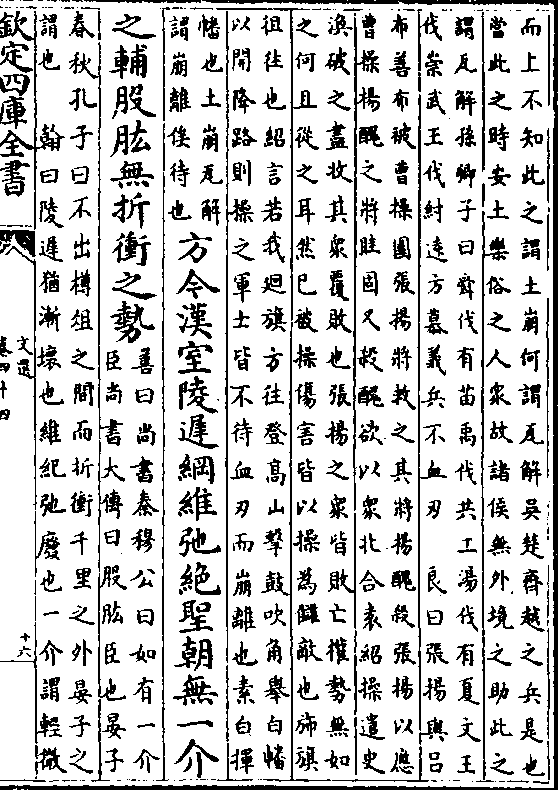 而上不知此之謂土崩何謂瓦解吳楚齊越之兵是也
當此之時安土樂俗之人衆故諸侯無外境之助此之
謂瓦解孫卿子曰舜伐有苗禹伐共工湯伐有夏文王
伐崇武王伐紂逺方慕義兵不血刃　良曰張揚與吕
布善布被曹操圍張揚將救之其將揚醜殺張揚以應
曹操揚醜之將眭固又殺醜欲以衆北合袁紹操遣史
渙破之盡收其衆覆敗也張揚之衆皆敗亡權勢無如
之何且從之耳然已被操傷害皆以操為讎敵也斾旗
徂往也紹言若我廻旗方往登髙山擊鼓吹角舉白幡
以開降路則操之軍士皆不待血刃而崩離也素白揮
幡也土崩瓦解
謂崩離俟待也
方今漢室陵遲綱維弛絶聖朝無一介
之輔股肱無折衝之勢
善曰尚書秦穆公曰如有一介
臣尚書大傳曰股肱臣也晏子
春秋孔子曰不出樽俎之間而折衝千里之外晏子之
謂也　翰曰陵遲猶漸壞也維紀弛廢也一介謂輕微
欽定四庫全書
文選
卷四十四
十六